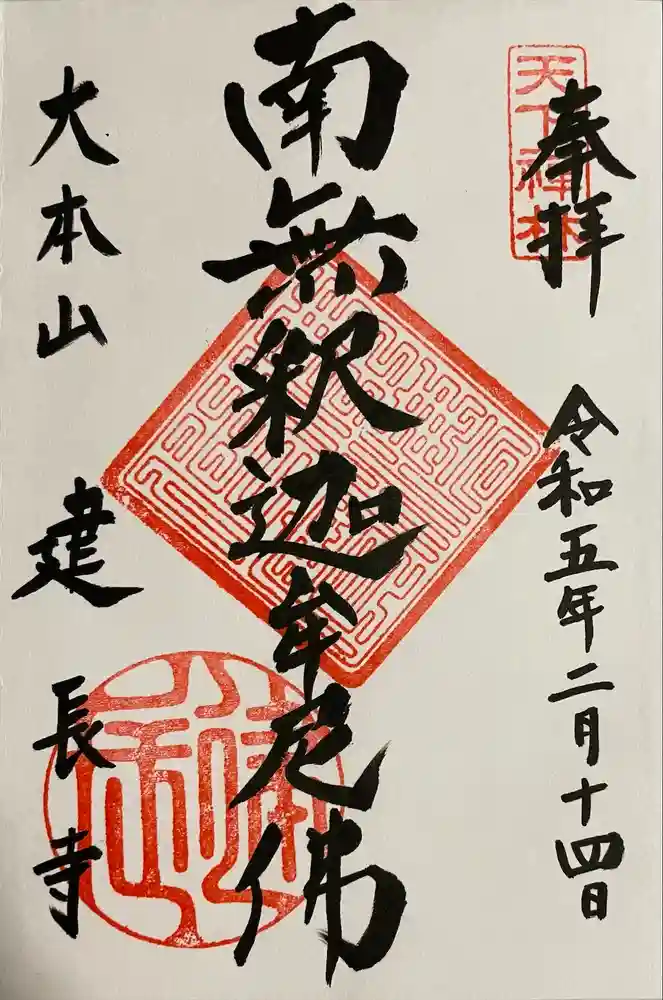 奉拝
天下禅林
令和五年二月十四日
南無釈迦牟尼佛
大本山 建長寺